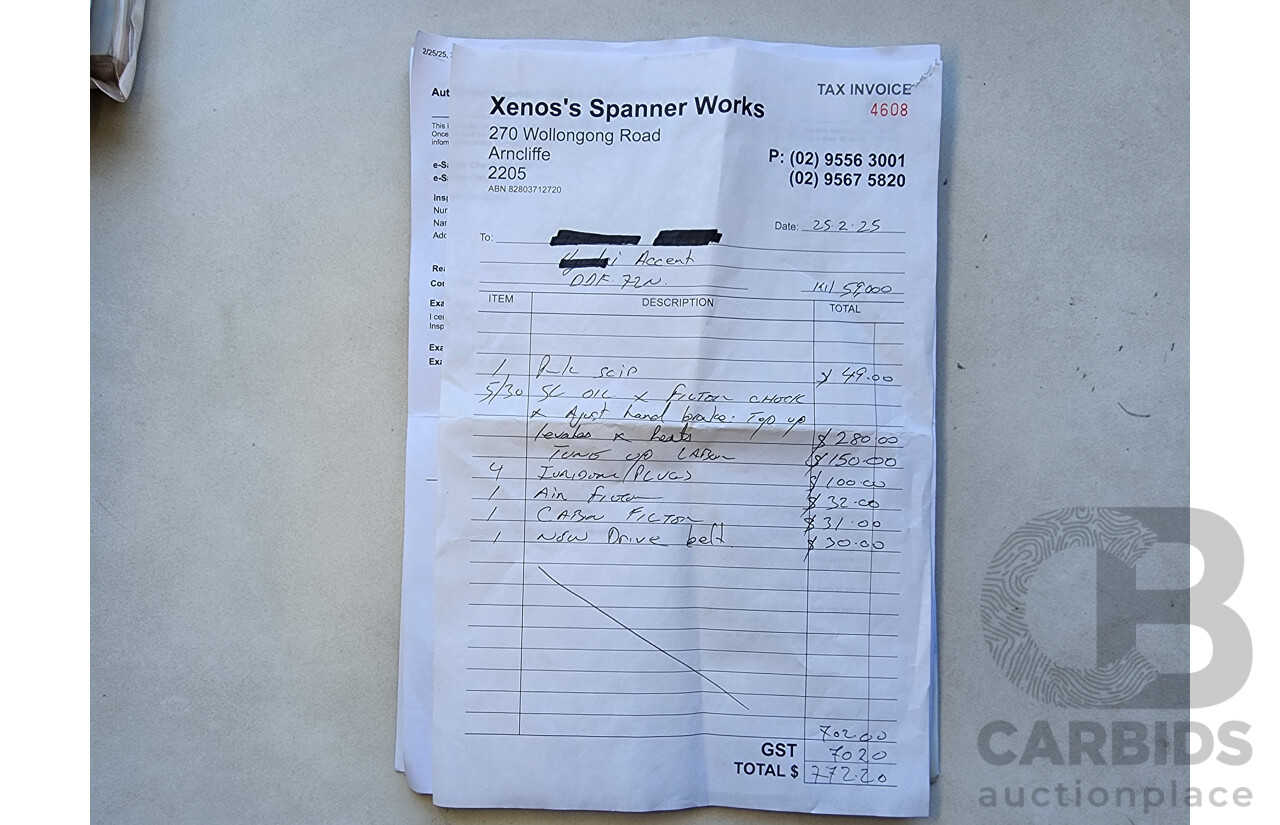 2/25/25,
Aut
This i
Once
inform
e-Sa
e-Sa
Insp
Nur
Nar
Add
Rea
Cor
Exa
I cer
Insp
Exa
Exa
TAX INVOICE
4608
Xenos's Spanner Works
270 Wollongong Road
Arncliffe
2205
ABN 82803712720
P: (02) 9556 3001
(02) 9567 5820
Date: 25.2.25
To:
Accent
DDF. 72N.
Kil 59000
ITEM DESCRIPTION TOTAL
1 Pink scip $ 49.00
5/30 5L OIL x FILTOR CHOCK
x Ajust hand brake. Top up
levales x $ 280 00
TUNE UP LABOR $ 150.00
4 PLUGS $ 100.00
1 Air FILTOR $ 32.00
1 CABIN FILTOR $ 31.00
1 NEW Drive belt. $ 30.00
702 00
GST 70 20
TOTAL $ 772.20
CB
CARBIDS
auctionplace